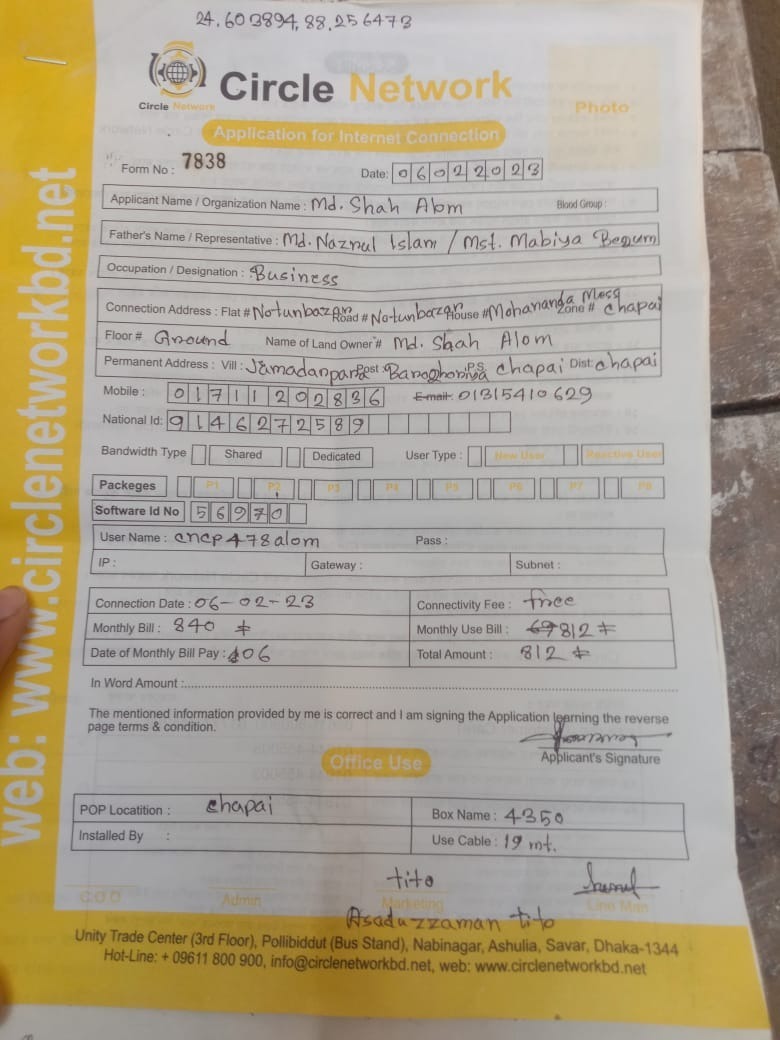 24.603894, 88.256473
Circle Network
Circle Network
Photo
Application for Internet Connection
Form No : 7838
Date: 06022023
Applicant Name / Organization Name : Md. Shah Alom Blood Group :
Father's Name / Representative : Md. Nazrul Islam / Mst. Mabiya Begum
Occupation / Designation : Business
Connection Address : Flat # Notunbazar Road # Notunbazar House # Mohananda Mess Zone # chapai
Floor # Ground Name of Land Owner # Md. Shah Alom
Permanent Address : Vill : Jamadarpara Post : Baroghoriya P.S chapai Dist: chapai
Mobile : 01711202836 E-mail: 01315410629
National Id: 9146272589
Bandwidth Type Shared Dedicated User Type : New User Reactive User
Packeges P1 P2 P3 P4 P5 P6 P7 P8
Software Id No 56970
User Name : cncp478alom Pass :
IP : Gateway : Subnet :
Connection Date : 06-02-23 Connectivity Fee : free
Monthly Bill : 840 Monthly Use Bill : 812
Date of Monthly Bill Pay : 06 Total Amount : 812
In Word Amount :
The mentioned information provided by me is correct and I am signing the Application learning the reverse
page terms & condition.
Applicant's Signature
Office Use
POP Locatition : chapai Box Name : 4350
Installed By : Use Cable : 19 mt.
tito
C.O.D Admin Marketing Line Man
Asaduzzaman tito
Unity Trade Center (3rd Floor), Pollibiddut (Bus Stand), Nabinagar, Ashulia, Savar, Dhaka-1344
Hot-Line: + 09611 800 900, info@circlenetworkbd.net, web: www.circlenetworkbd.net
web: www.circlenetworkbd.net